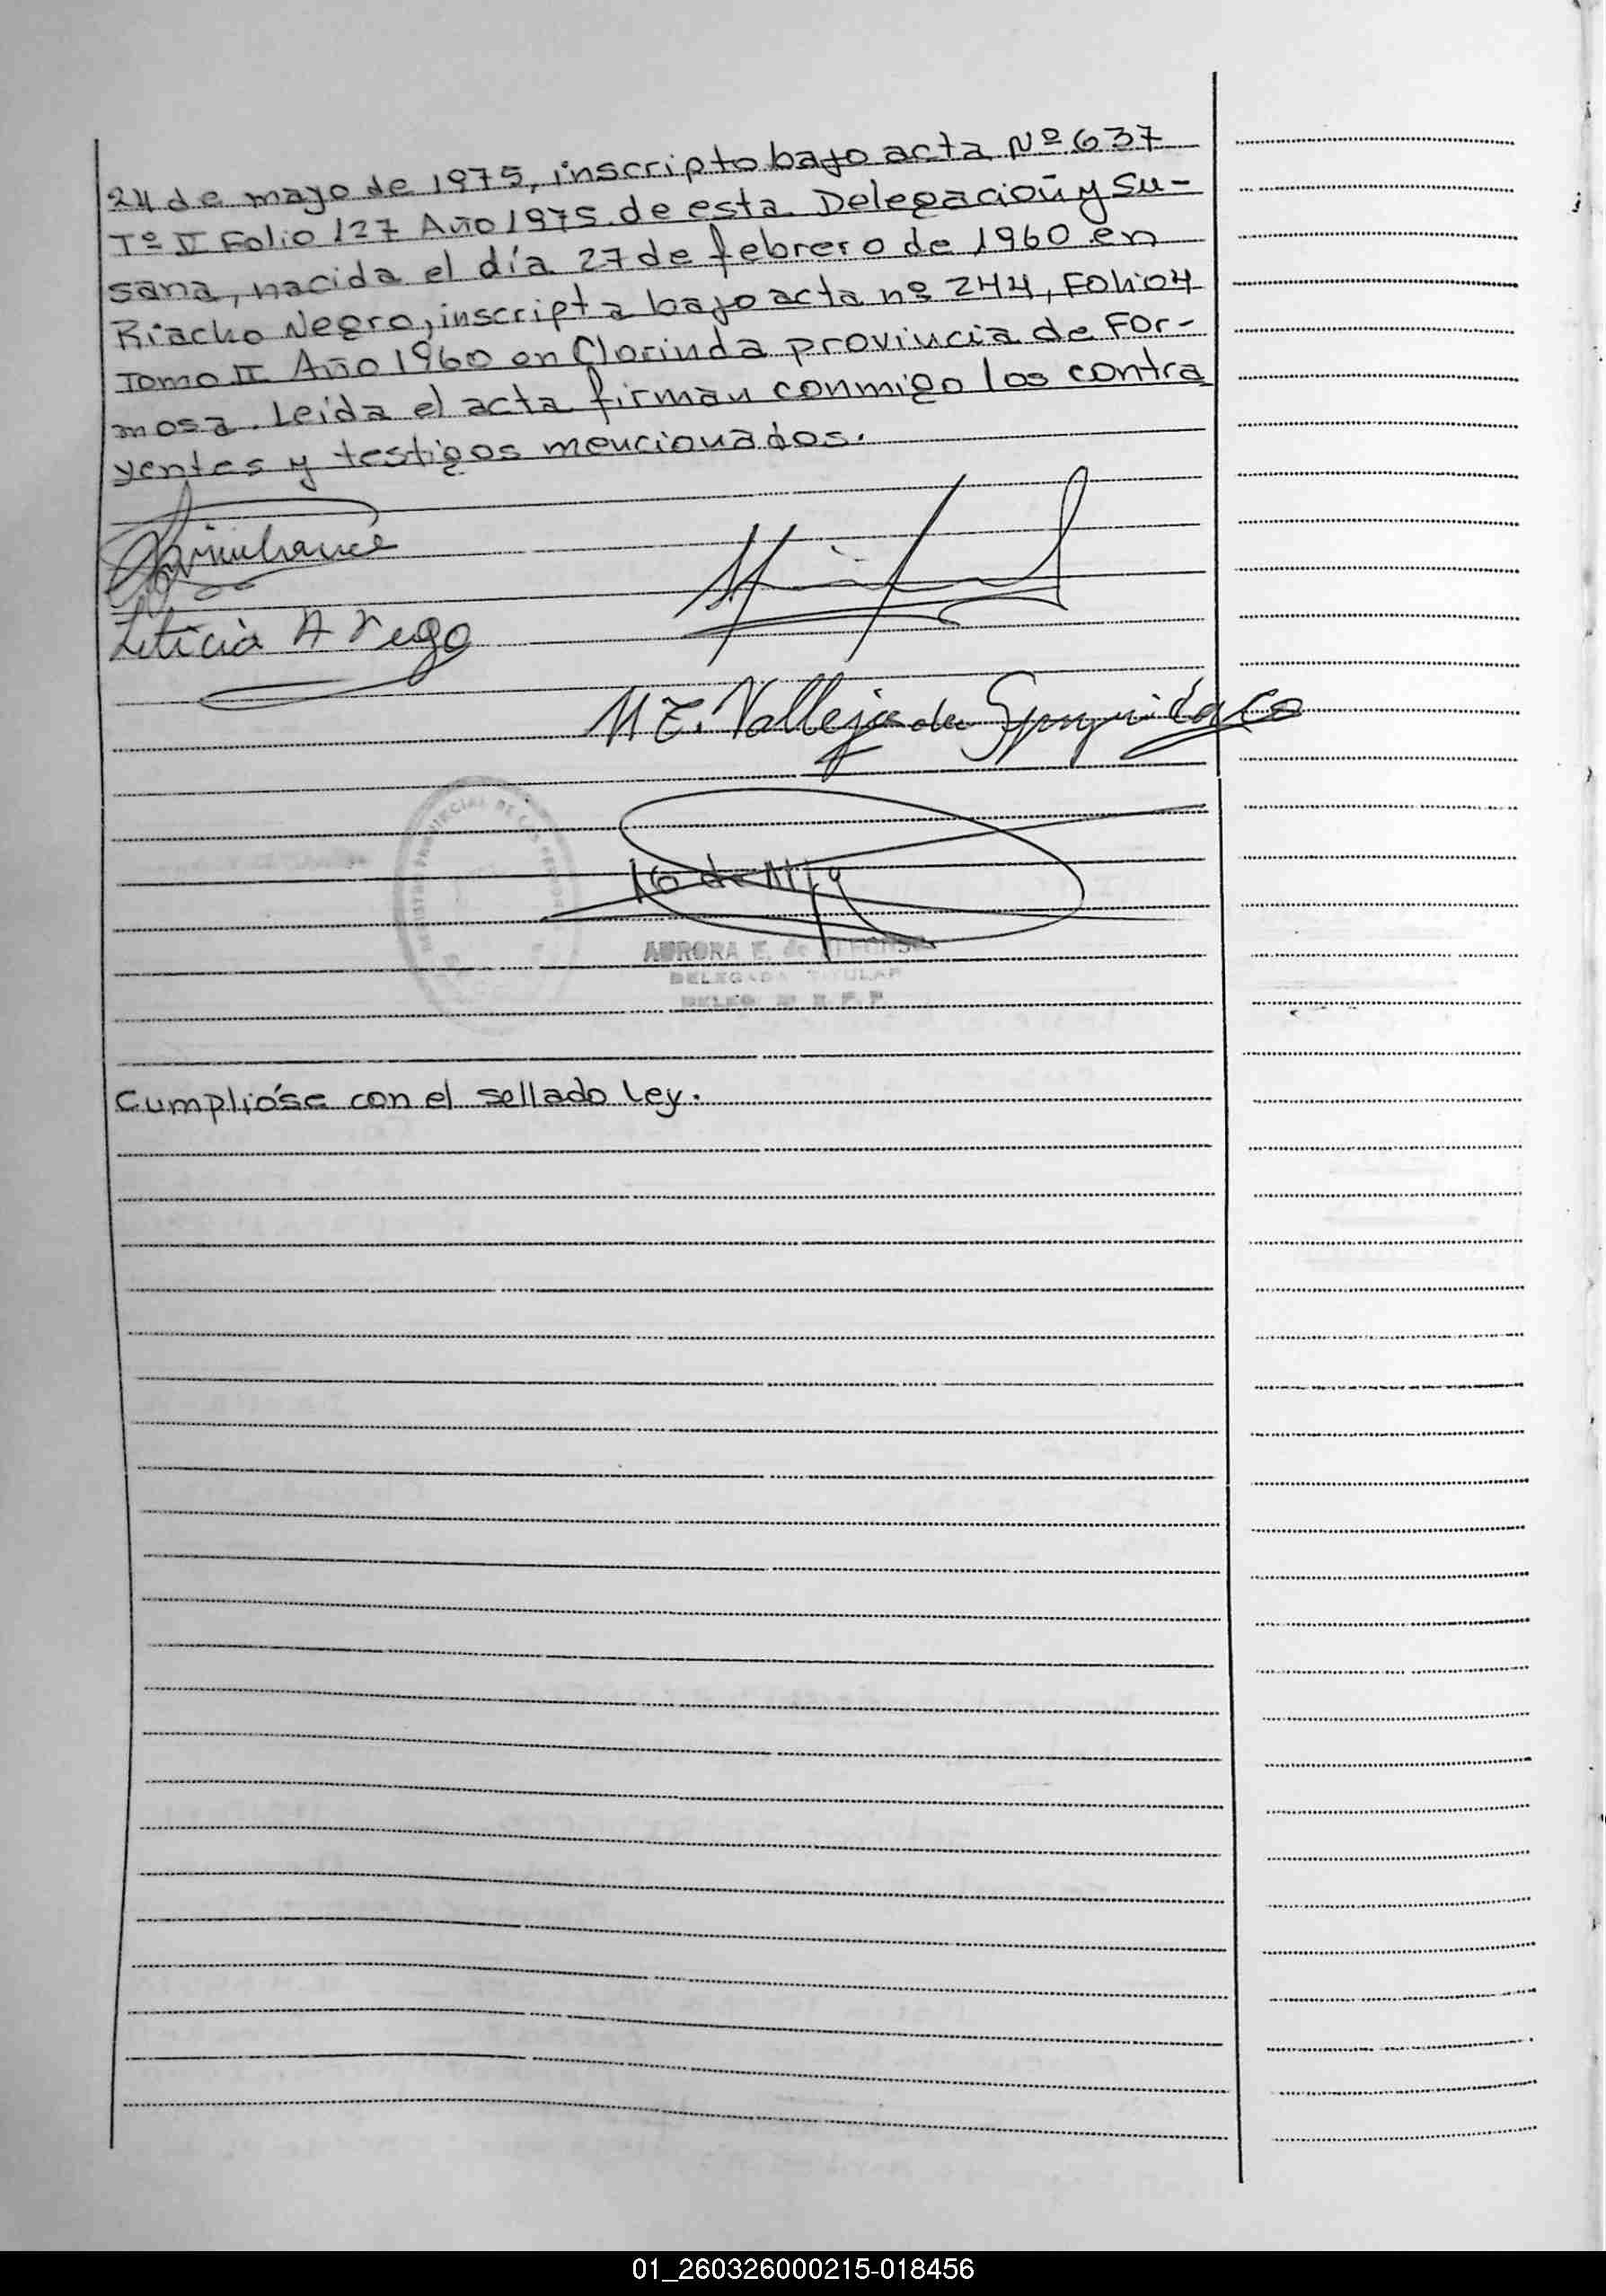 24 de mayo de 1975, inscripto bajo acta Nº 637
Tº II Folio 127 Año 1975 de esta Delegación y Su-
sana, nacida el día 27 de febrero de 1960 en
Riacho Negro, inscripta bajo acta nº 244, Folio 4
Tomo II Año 1960 en Clorinda provincia de For-
mosa. Leída el acta firman conmigo los contra
yentes y testigos mencionados.
Leticia A Vego
M T. Vallejo de
REGISTRO PROVINCIAL DE LAS PERSONAS
AURORA E. de
DELEGADA TITULAR
Cumplióse con el sellado Ley.
01_260326000215-018456